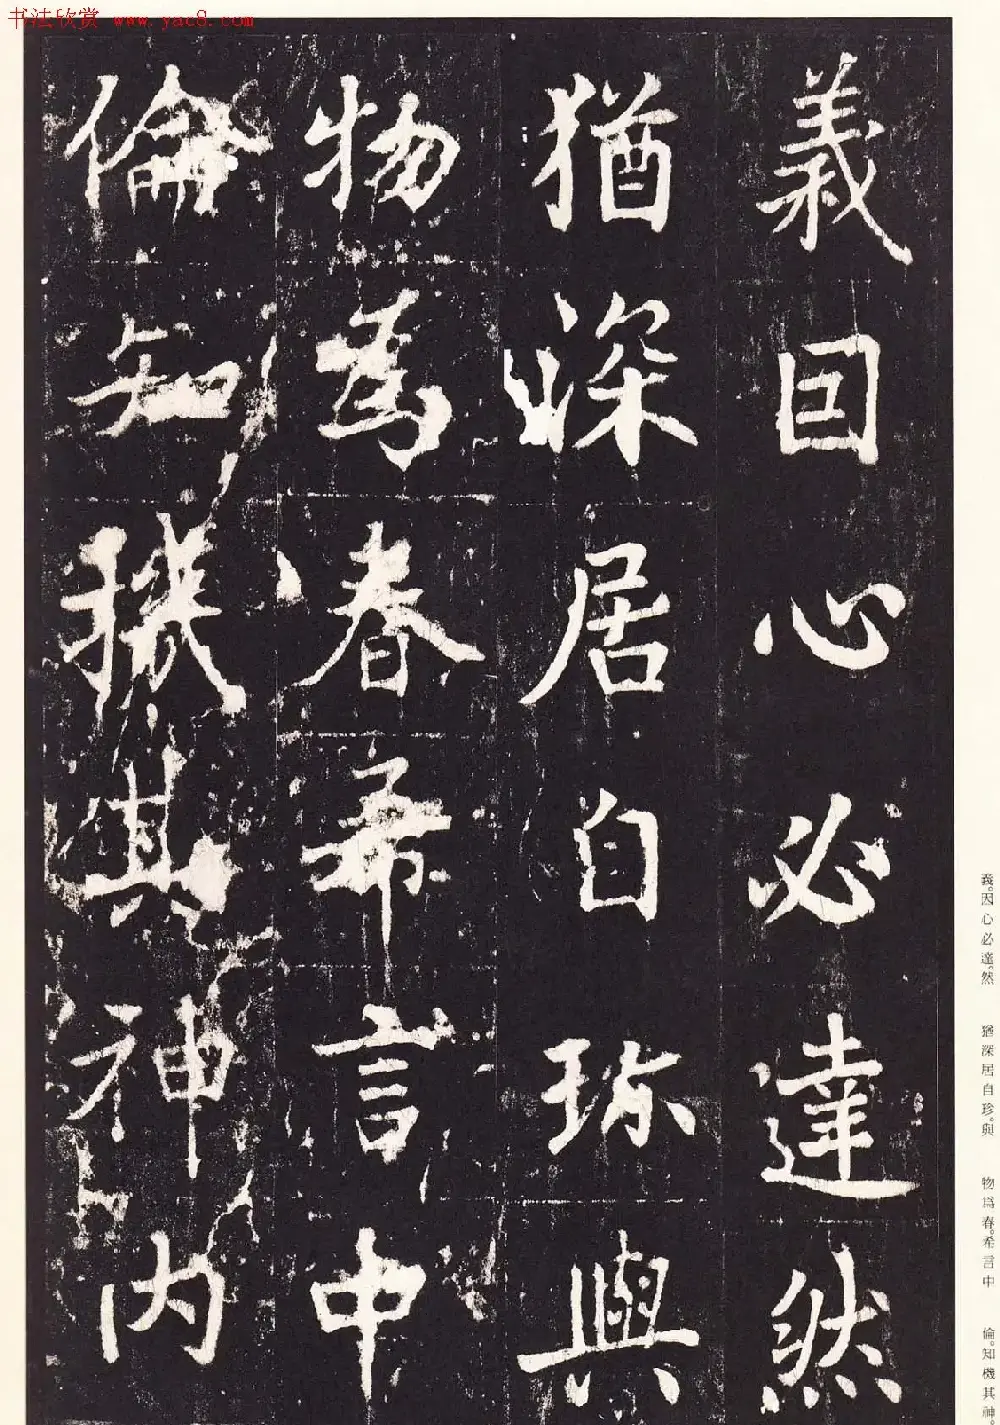 书法欣赏 www.yac8.com
義因心必達然
猶深居自珎與
物為春希言中
倫知機其神内
義。因心必達。然
猶深居自珍。與
物爲春。希言中
倫。知機其神。